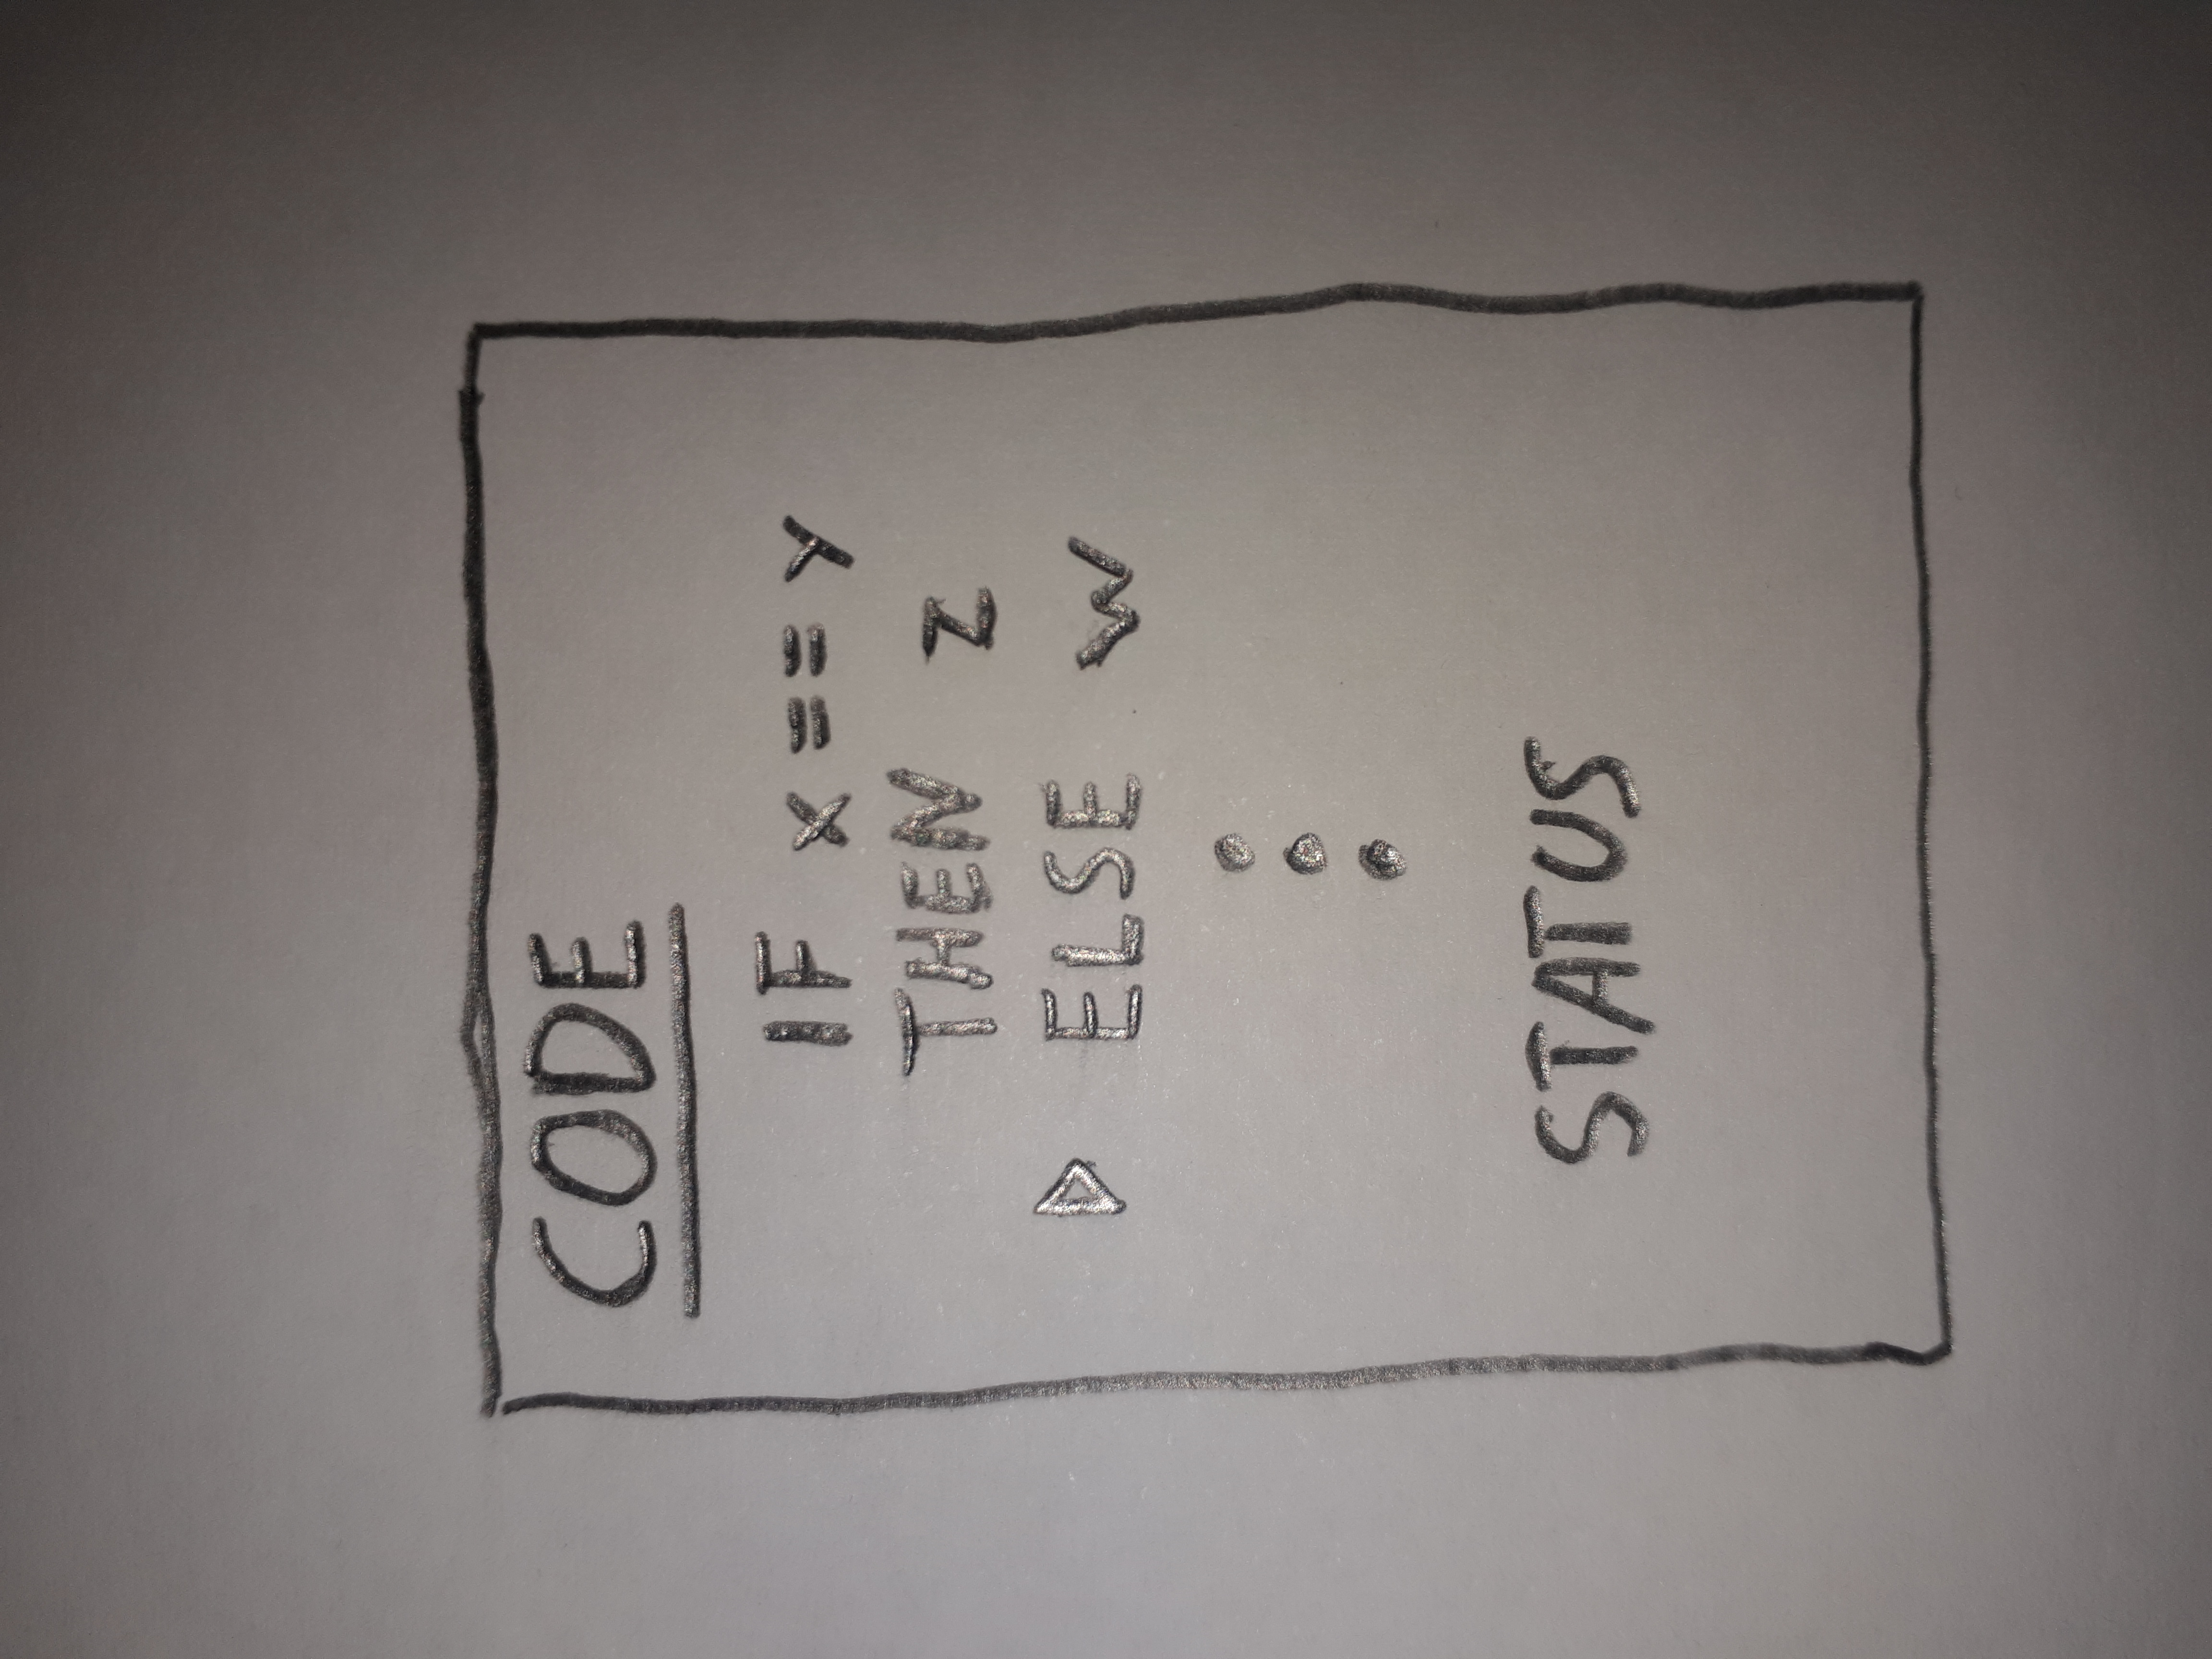 CODE
IF x == y
THEN z
▷ ELSE w
STATUS